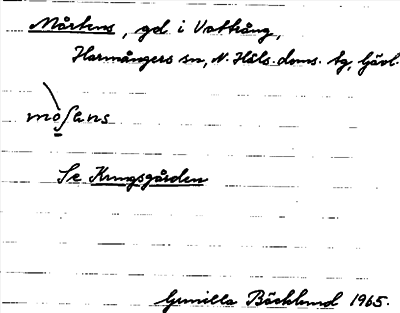 Mårtens, gd. i Vattrång,
Harmångers sn, N. Häls. doms. tg, Gävl.
Se Kungsgården
Gunilla Bäcklund 1965.